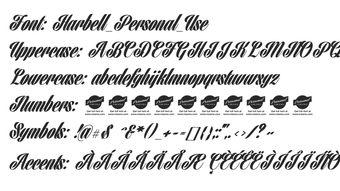 Font: Harbell_Personal_Use
Uppercase: ABCDEFGHIJKLMNOPQ
Lowercase: abcdefghijklmnopqrstuvwxyz
Numbers:
Symbols: !@#$ ^&*()_+-=[]{};:",.<>/?~
Accents: ÀÁÂÃÄÅÆ ÇÈÉÊËÌÍÎÏÑÒ